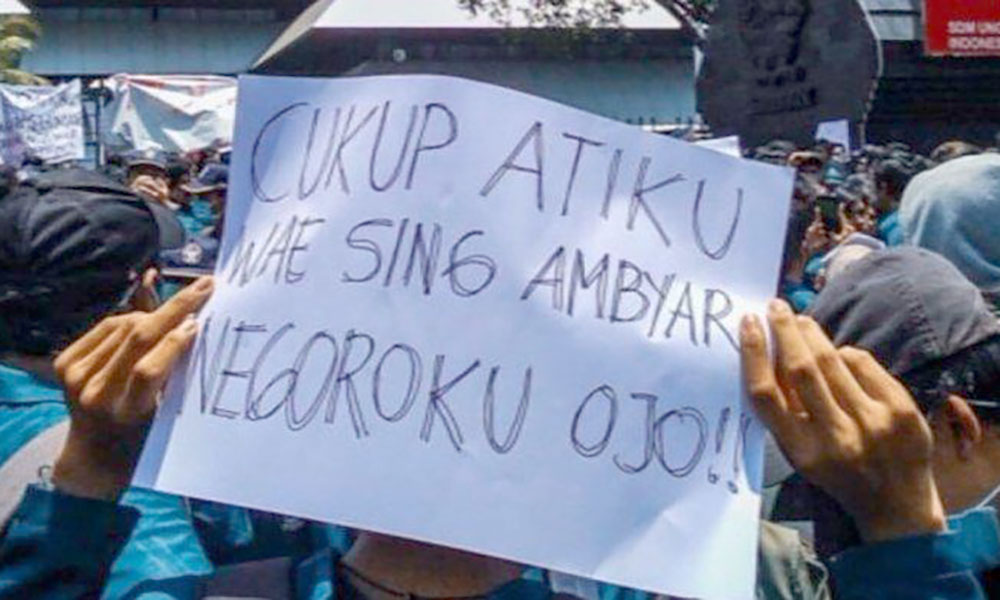 CUKUP ATIKU
WAE SING AMBYAR
NEGOROKU OJO!!
SDM UN
INDONES